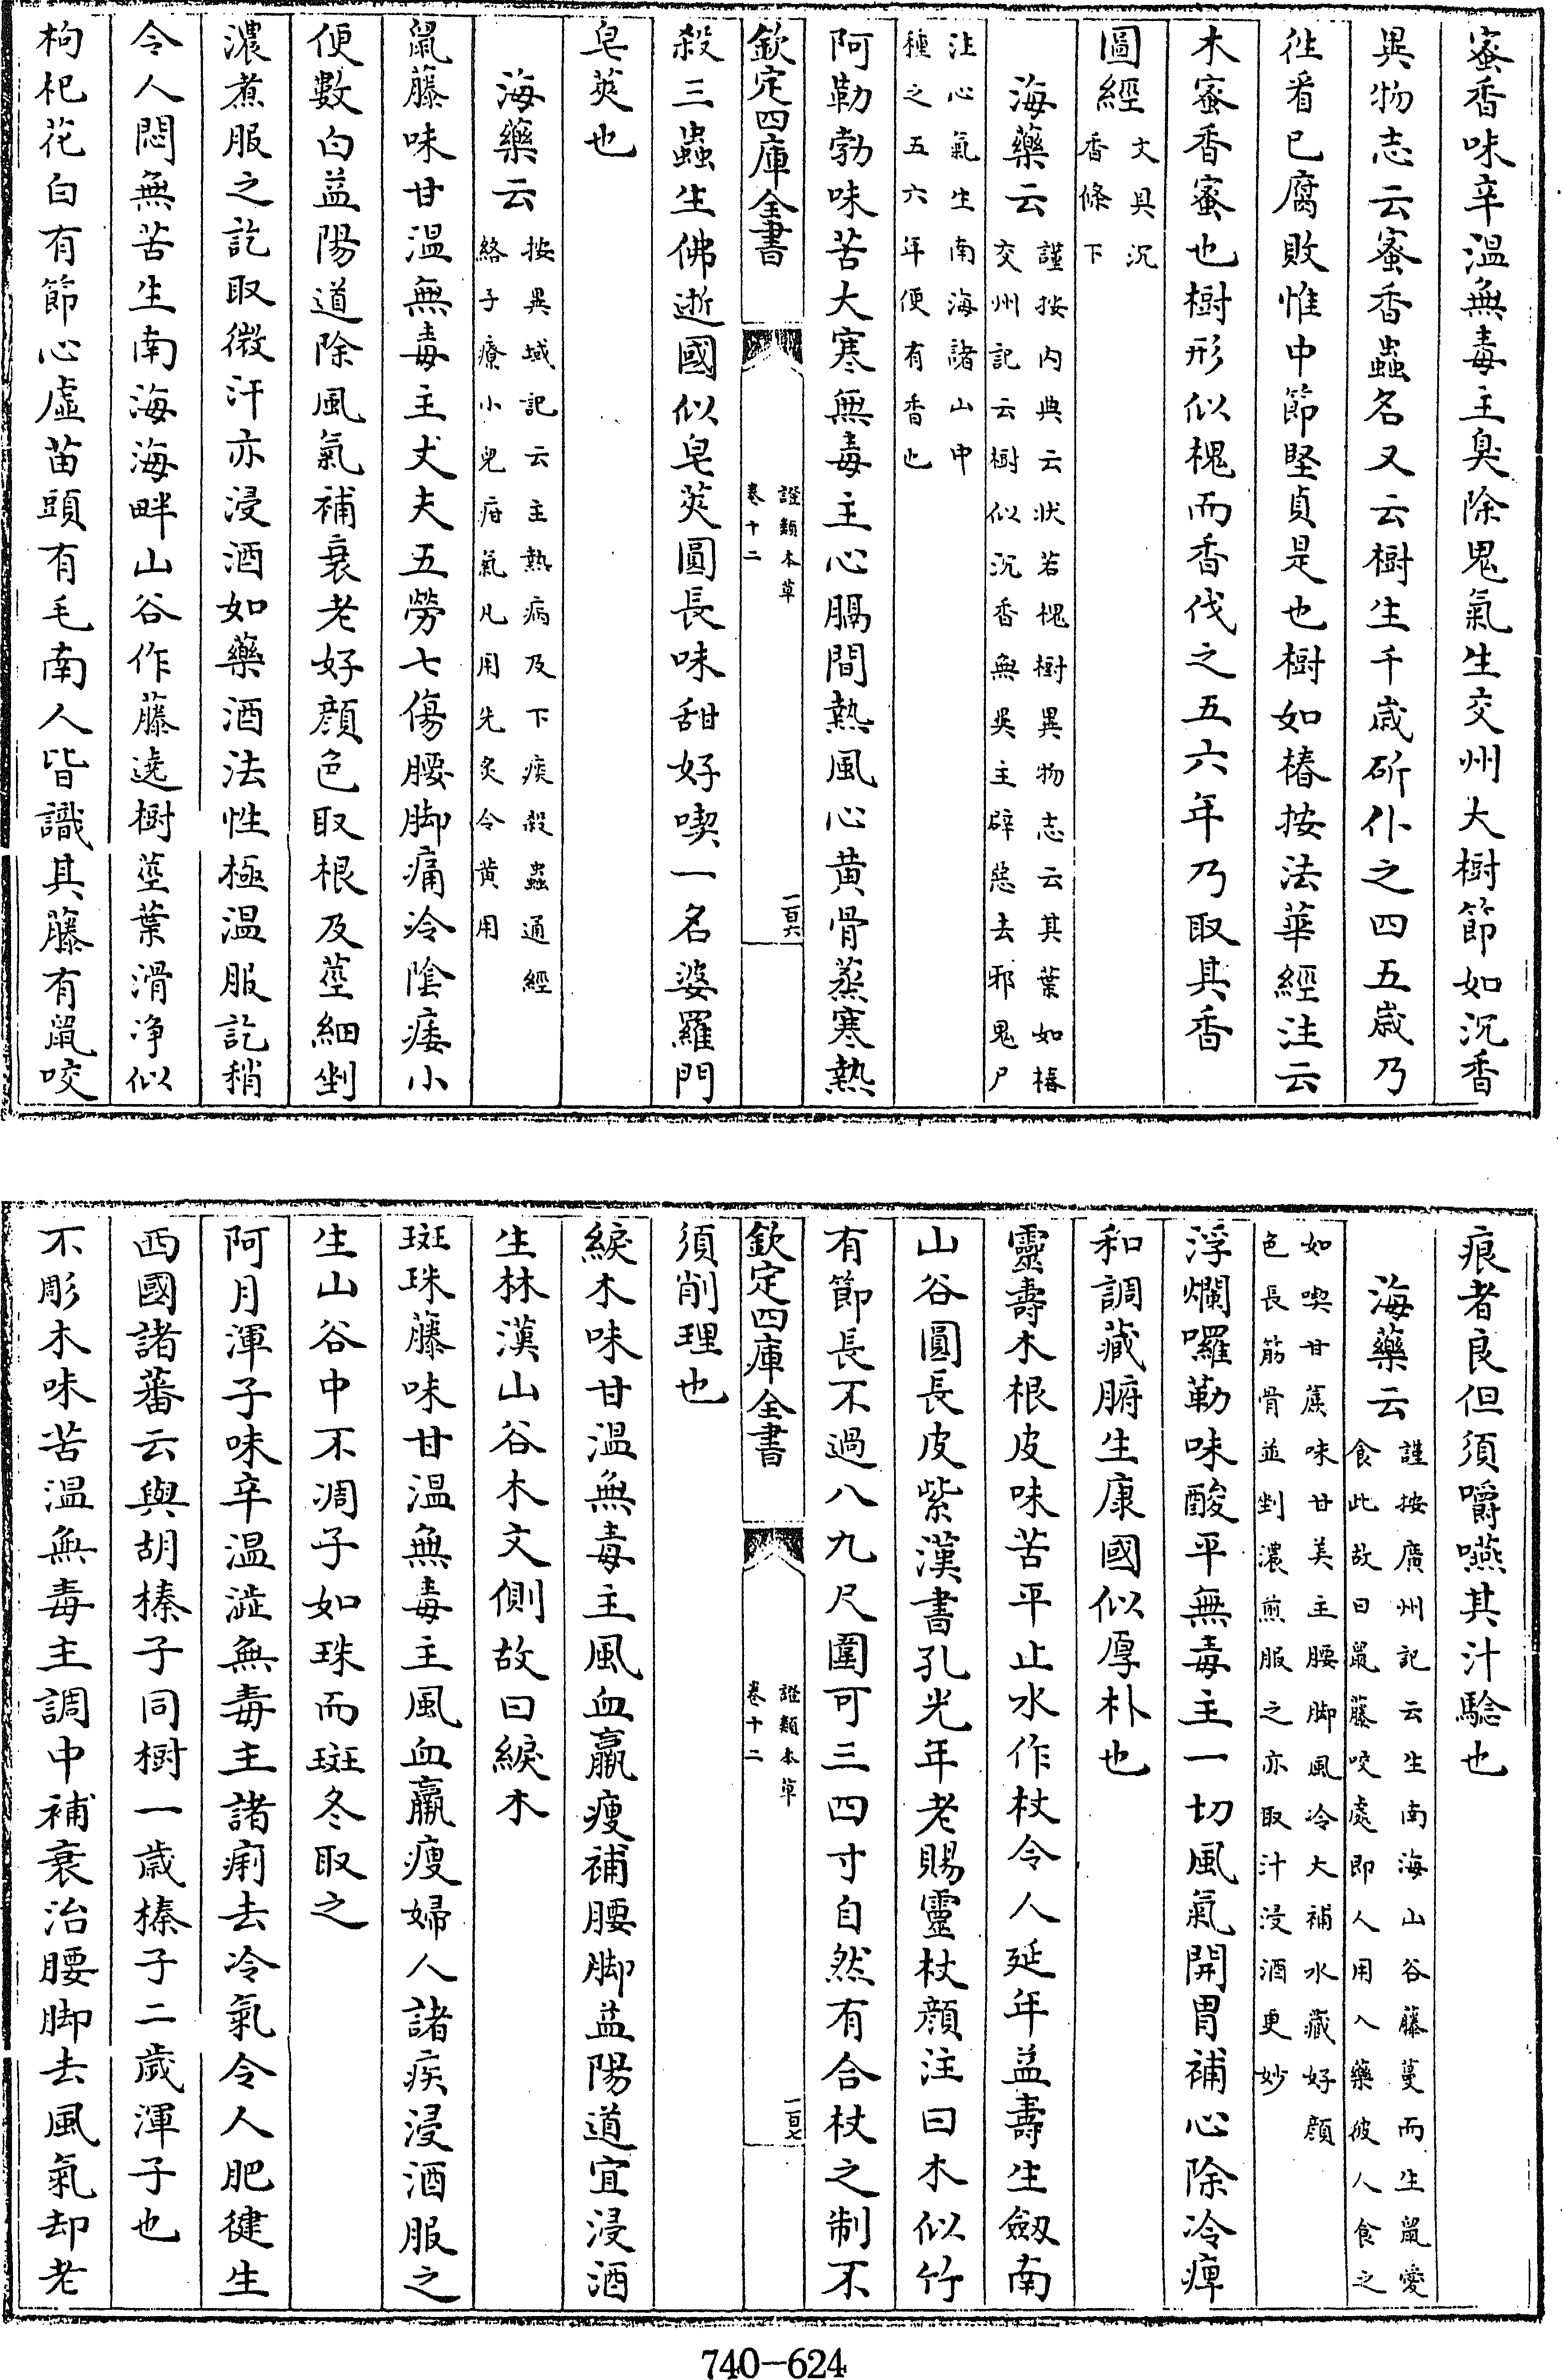 蜜香味辛温無毒主臭除鬼氣生交州大樹節如沉香
異物志云蜜香蟲名又云樹生千歳斫仆之四五歳乃
徃看已腐敗惟中節堅貞是也樹如椿按法華經注云
木蜜香蜜也樹形似槐而香伐之五六年乃取其香
圖經文具沉
香條下
海藥云謹按内典云状若槐樹異物志云其葉如椿
交州記云樹似沉香無異主辟惡去邪鬼尸
注心氣生南海諸山中
種之五六年便有香也
阿勒勃味苦大寒無毒主心膈間熱風心黄骨蒸寒熱
欽定四庫全書
證類本草
卷十二
一百六
殺三蟲生佛逝國似皂莢圓長味甜好喫一名婆羅門
皂莢也
海藥云按異域記云主熱病及下痰殺蟲通經
絡子療小兒疳氣凡用先炙令黄用
鼠藤味甘温無毒主丈夫五勞七傷腰脚痛冷陰痿小
便數白益陽道除風氣補衰老好顔色取根及莖細剉
濃煮服之訖取微汗亦浸酒如藥酒法性極温服訖稍
令人悶無苦生南海海畔山谷作藤遶樹莖葉滑净似
枸杞花白有節心虚苗頭有毛南人皆識其藤有鼠咬
痕者良但須嚼嚥其汁驗也
海藥云謹按廣州記云生南海山谷藤蔓而生鼠愛
食此故曰鼠藤咬處即人用入藥彼人食之
如喫甘蔗味甘美主腰脚風冷大補水藏好顔
色長筋骨並剉濃煎服之亦取汁浸酒更妙
浮爛囉勒味酸平無毒主一切風氣開胃補心除冷痺
和調藏腑生康國似厚朴也
靈壽木根皮味苦平止水作杖令人延年益壽生劔南
山谷圓長皮紫漢書孔光年老賜靈杖顔注曰木似竹
有節長不過八九尺圍可三四寸自然有合杖之制不
欽定四庫全書
證類本草
卷十二
一百七
須削理也
綟木味甘温無毒主風血羸瘦補腰脚益陽道宜浸酒
生林漢山谷木文側故曰綟木
斑珠藤味甘温無毒主風血羸瘦婦人諸疾浸酒服之
生山谷中不凋子如珠而斑冬取之
阿月渾子味辛温澁無毒主諸痢去冷氣令人肥健生
西國諸蕃云與胡榛子同樹一歳榛子二歳渾子也
不彫木味苦温無毒主調中補衰治腰脚去風氣却老
740-624